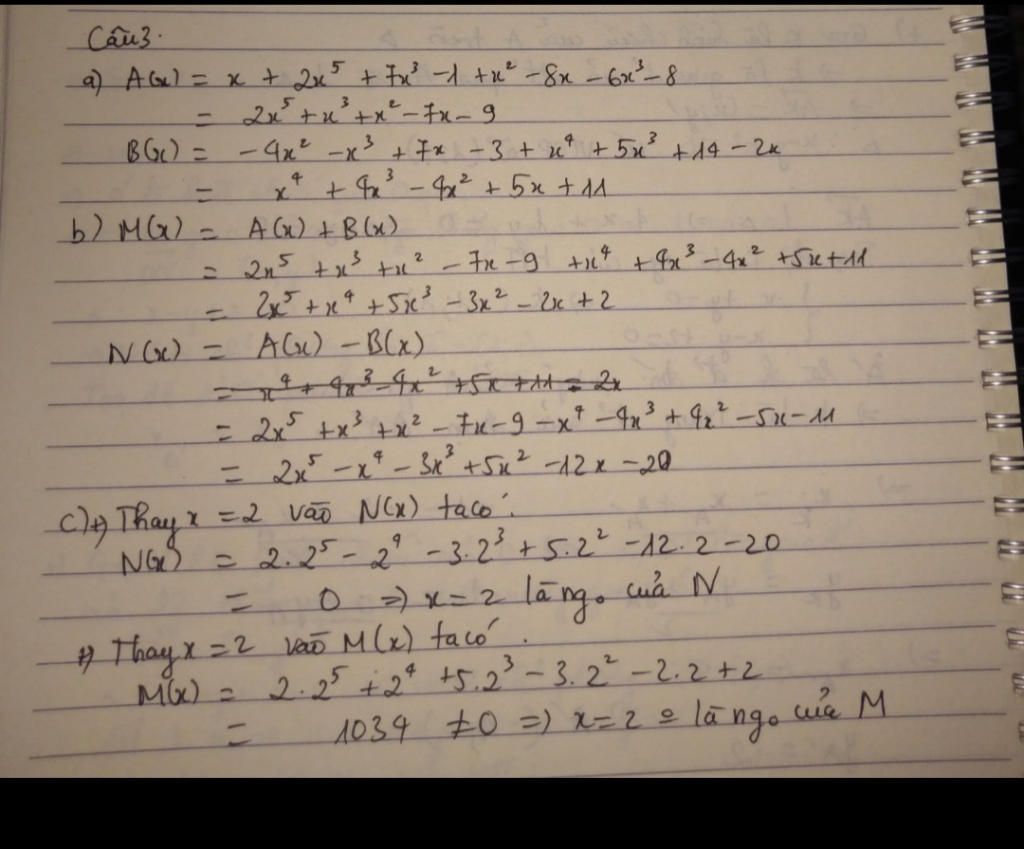 Câu 3.
a) A(x) = x + 2x⁵ + 7x³ - 1 + x² - 8x - 6x³ - 8
= 2x⁵ + x³ + x² - 7x - 9
B(x) = - 4x² - x³ + 7x - 3 + x⁴ + 5x³ + 14 - 2x
= x⁴ + 4x³ - 4x² + 5x + 11
b) M(x) = A(x) + B(x)
= 2x⁵ + x³ + x² - 7x - 9 + x⁴ + 4x³ - 4x² + 5x + 11
= 2x⁵ + x⁴ + 5x³ - 3x² - 2x + 2
N(x) = A(x) - B(x)
= x⁴ + 4x³ - 4x² + 5x + 11 = 2x
= 2x⁵ + x³ + x² - 7x - 9 - x⁴ - 4x³ + 4x² - 5x - 11
= 2x⁵ - x⁴ - 3x³ + 5x² - 12x - 20
c) +) Thay x = 2 vào N(x) ta có:
N(x) = 2.2⁵ - 2⁴ - 3.2³ + 5.2² - 12.2 - 20
= 0 => x = 2 là ng₀ của N
+) Thay x = 2 vào M(x) ta có:
M(x) = 2.2⁵ + 2⁴ + 5.2³ - 3.2² - 2.2 + 2
= 1034 ≠ 0 => x = 2 là ng₀ của M